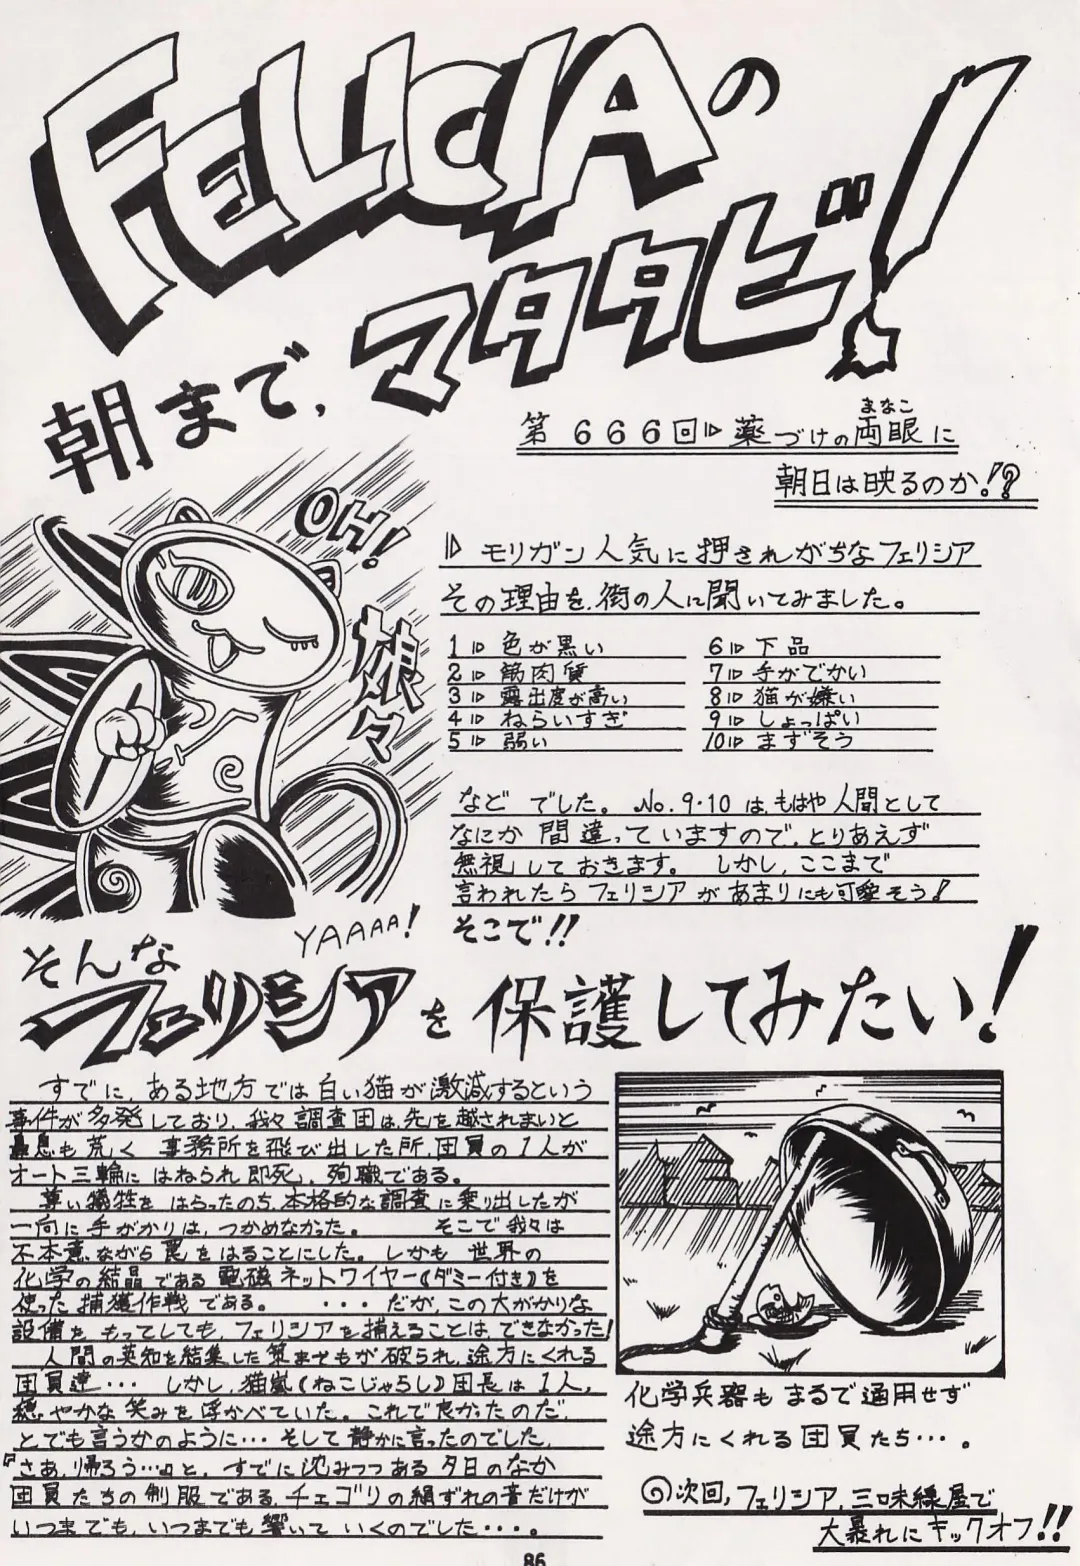 FELICIAの
朝まで、マタタビ!
第666回▷薬づけの両眼に
まなこ
朝日は映るのか!?
OH!
娘々
▷モリガン人気に押されがちなフェリシア
その理由を、街の人に聞いてみました。
1▷色が黒い
2▷筋肉質
3▷露出度が高い
4▷ねらいすぎ
5▷弱い
6▷下品
7▷手がでかい
8▷猫が嫌い
9▷しょっぱい
10▷まずそう
など でした。No.9・10は、もはや人間として
なにか間違っていますので、とりあえず
無視しておきます。しかし、ここまで
言われたらフェリシアがあまりにも可哀そう!
そこで!!
YAAAA!
そんな
フェリシアを保護してみたい!
すでに、ある地方では白い猫が激減するという
事件が多発しており、我々調査団は、先を越されまいと
鼻息も荒く 事務所を飛び出した所、団員の1人が
オート三輪に はねられ即死、殉職である。
尊い犠牲を はらったのち、本格的な調査に乗り出したが
一向に手がかりは、つかめなかった。 そこで我々は
不本意ながら罠をはることにした。しかも 世界の
化学の結晶である電磁ネットワイヤー(ダミー付き)を
使った捕獲作戦である。 ・・・だが、この大がかりな
設備を もってしても、フェリシアを捕えることは、できなかった!
人間の英知を結集した策までもが破られ、途方にくれる
団員達・・・ しかし、猫嵐(ねこじゃらし)団長は1人、
穏やかな笑みを浮かべていた。これで良かったのだ、
とでも言うかのように・・・そして静かに言ったのでした、
『さあ、帰ろう…』と、すでに沈みつつある夕日のなか
団員たちの制服である、チェゴリの絹ずれの音だけが
いつまでも、いつまでも響いていくのでした・・・。
化学兵器もまるで通用せず
途方にくれる団員たち・・・。
◎次回、フェリシア、三味線屋で
大暴れにキックオフ!!
86